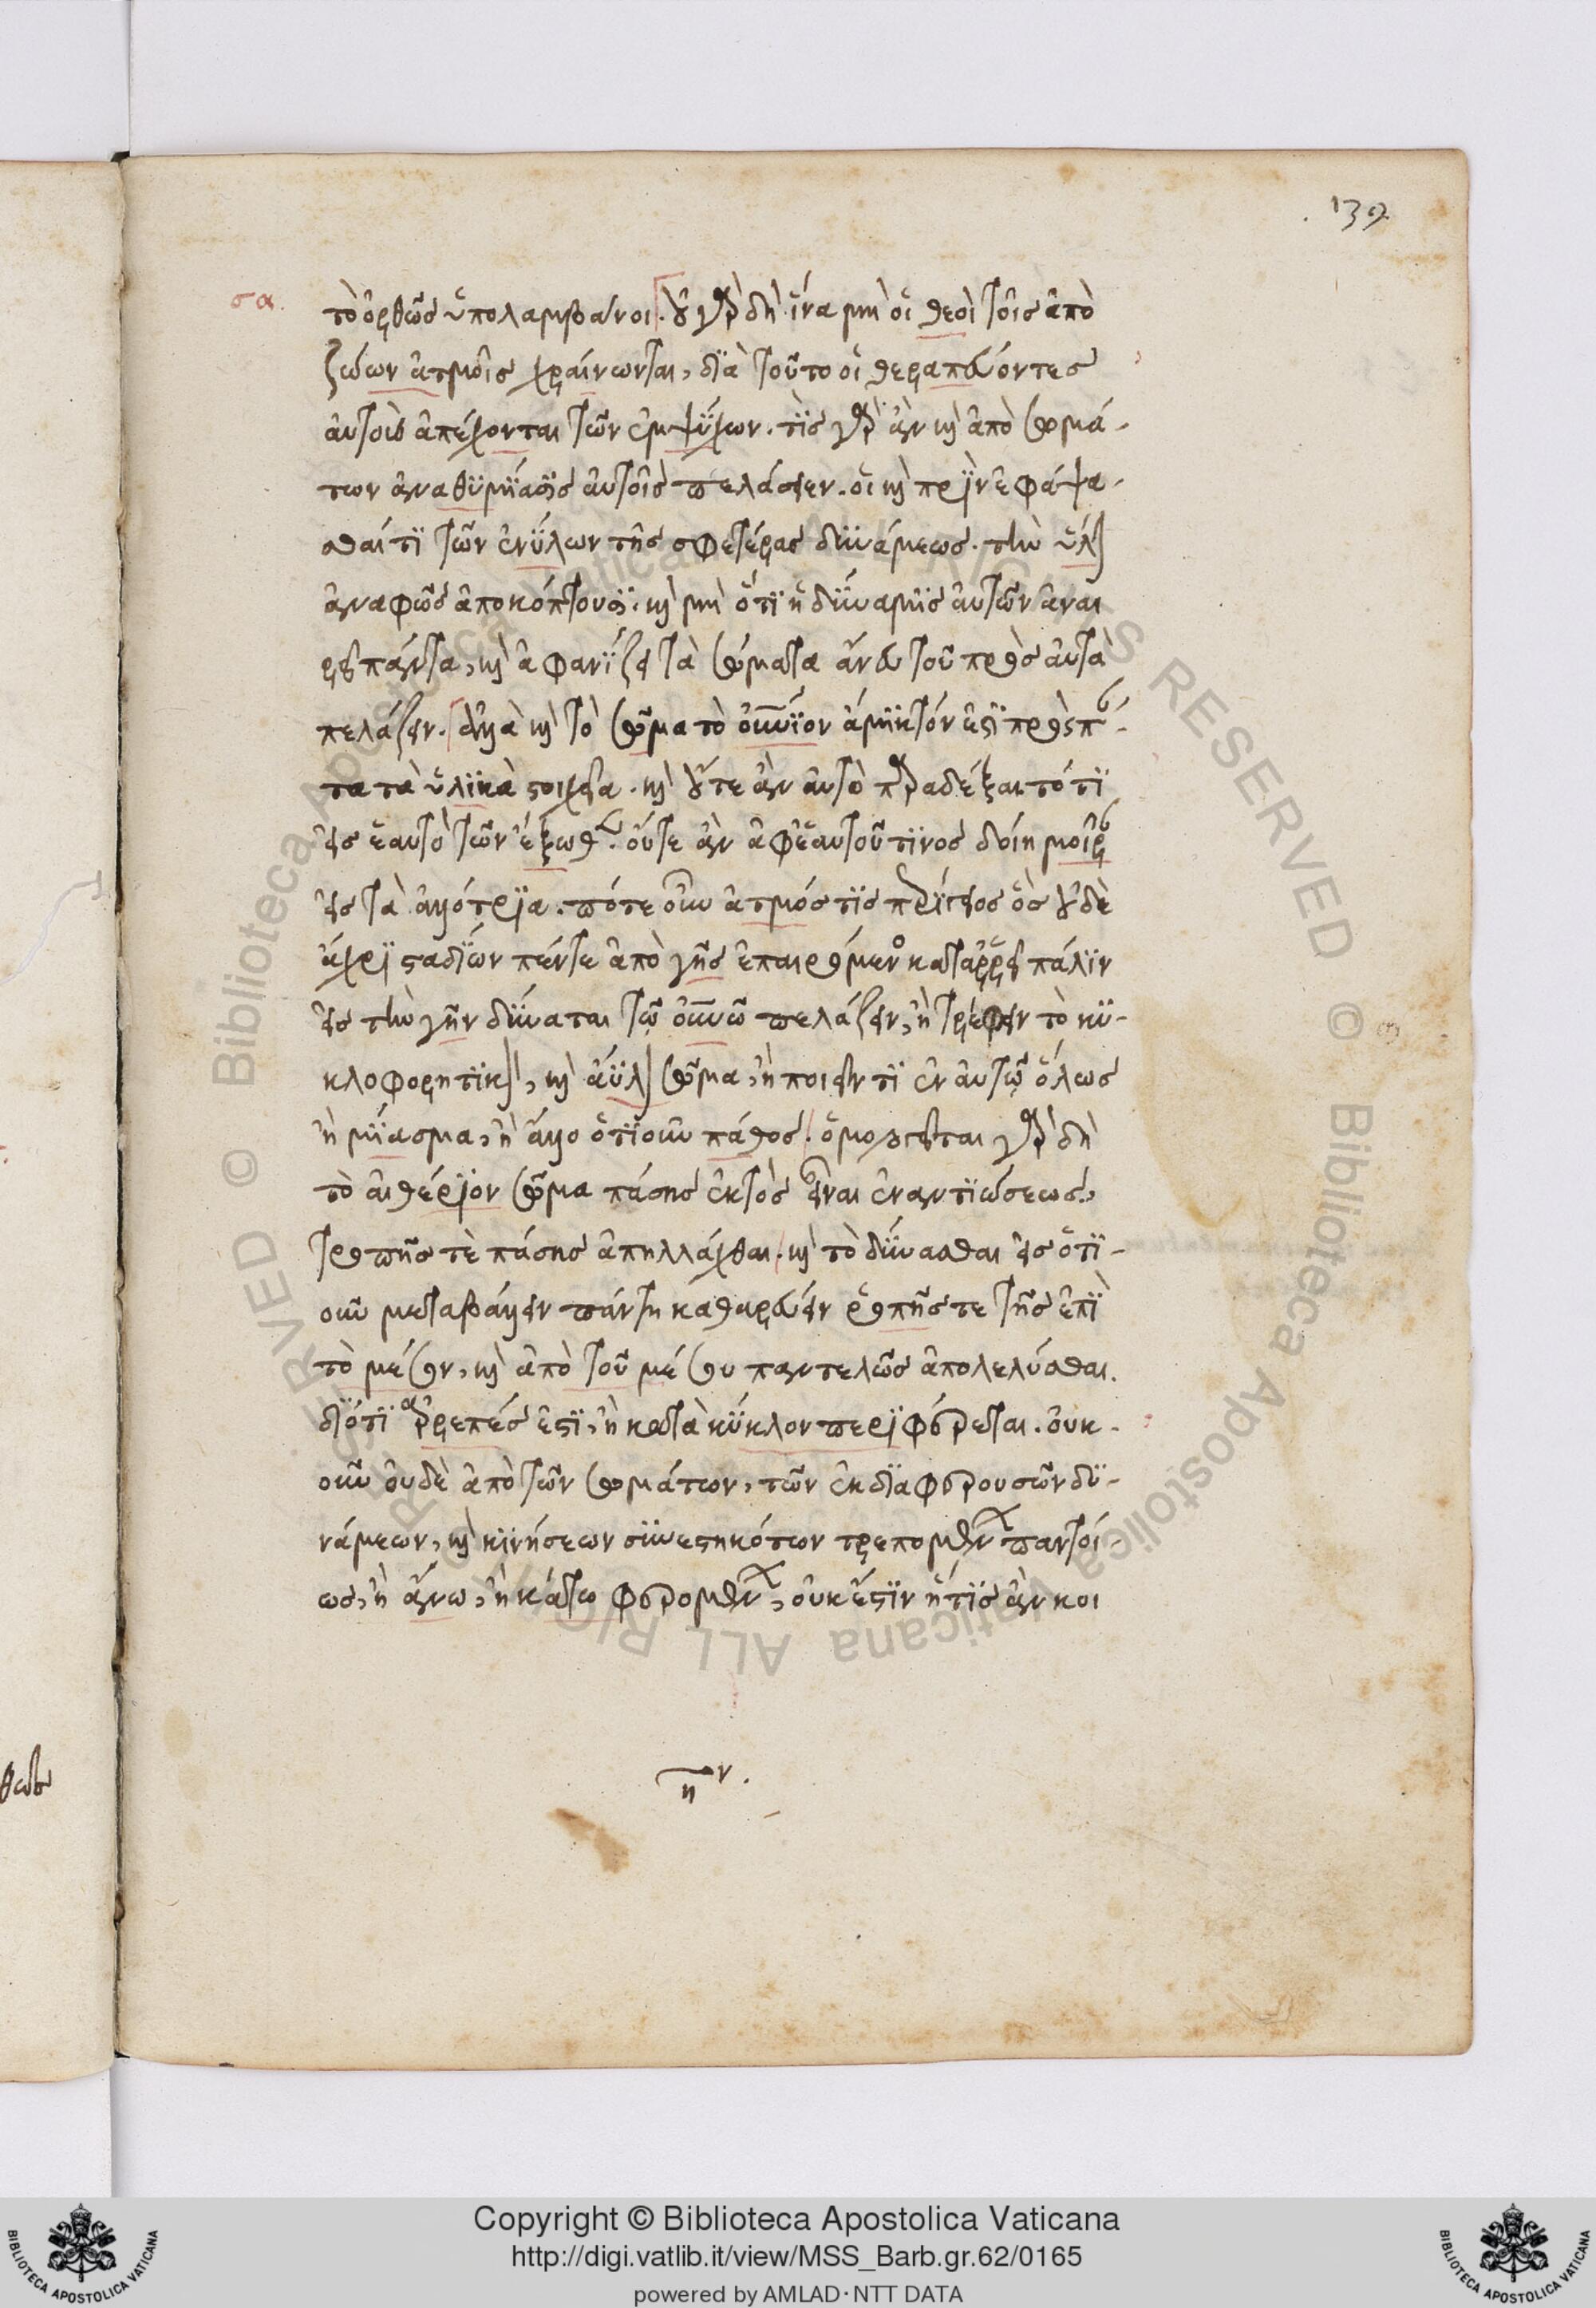 139
σα.
τὸ ὀρθῶς ὑπολαμβάνοι. οὐ γὰρ δὴ ἵνα μὴ οἱ θεοὶ τοῖς ἀπὸ
ζώων ἀτμοῖς χραίνωνται, διὰ τοῦτο οἱ θεραπεύοντες
αὐτοὺς ἀπέχονται τῶν ἐμψύχων. τίς γὰρ ἂν καὶ ἀπὸ σωμά-
των ἀναθυμίασις αὐτοῖς πελάσειεν. οἳ καὶ πρὶν ἐφάψα-
σθαί τι τῶν ἐνύλων τῆς σφετέρας δυνάμεως. τὴν ὕλην
ἀναφῶς ἀποκόπτουσι. καὶ μὴ ὅτι ἡ δύναμις αὐτῶν ἀναι
ρεῖ πάντα, καὶ ἀφανίζει τὰ σώματα ἄνευ τοῦ πρὸς αὐτὰ
πελάζειν. ἀλλὰ καὶ τὸ σῶμα τὸ οὐράνιον ἄμικτόν ἐστι πρὸς πάν-
τα τὰ ὑλικὰ στοιχεῖα. καὶ οὔτε ἂν αὐτὸ παραδέξαιτό τι
εἰς ἑαυτὸ τῶν ἔξωθεν. οὔτε ἂν ἀφ' ἑαυτοῦ τινος δοίη μοῖραν
εἰς τὰ ἀλλότρια. πότε οὖν ἀτμός τις περίγειος ὃς οὐδὲ
ἄχρι σταδίων πέντε ἀπὸ γῆς ἐπαιρόμενος καταρρεῖ πάλιν
εἰς τὴν γῆν δύναται τῷ οὐρανῷ πελάζειν, ἢ τρέφειν τὸ κυ-
κλοφορητικὸν, καὶ ἄϋλον σῶμα, ἢ ποιεῖν τι ἐν αὐτῷ ὅλως
ἢ μίασμα, ἢ ἄλλο ὁτιοῦν πάθος. ὁμολογεῖται γὰρ δὴ
τὸ αἰθέριον σῶμα πάσης ἐκτὸς εἶναι ἐναντιώσεως,
τροπῆς τὲ πάσης ἀπηλλάχθαι. καὶ τὸ δύνασθαι εἰς ὁτι-
οῦν μεταβάλλειν πάντῃ καθαρεύειν ῥοπῆς τε τῆς ἐπὶ
τὸ μέσον, καὶ ἀπὸ τοῦ μέσου παντελῶς ἀπολελύσθαι.
διότι ἀρρεπές ἐστι, ἢ κατὰ κύκλον περιφέρεται. οὐκ-
οῦν οὐδὲ ἀπὸ τῶν σωμάτων, τῶν ἐκ διαφερουσῶν δυ-
νάμεων, καὶ κινήσεων συνεστηκότων τρεπομένων παντοί-
ως, ἢ ἄνω, ἢ κάτω φερομένων, οὐκ ἔστιν ἥτις ἂν κοι
η ν.
θεὸς
Copyright © Biblioteca Apostolica Vaticana
http://digi.vatlib.it/view/MSS_Barb.gr.62/0165
powered by AMLAD·NTT DATA